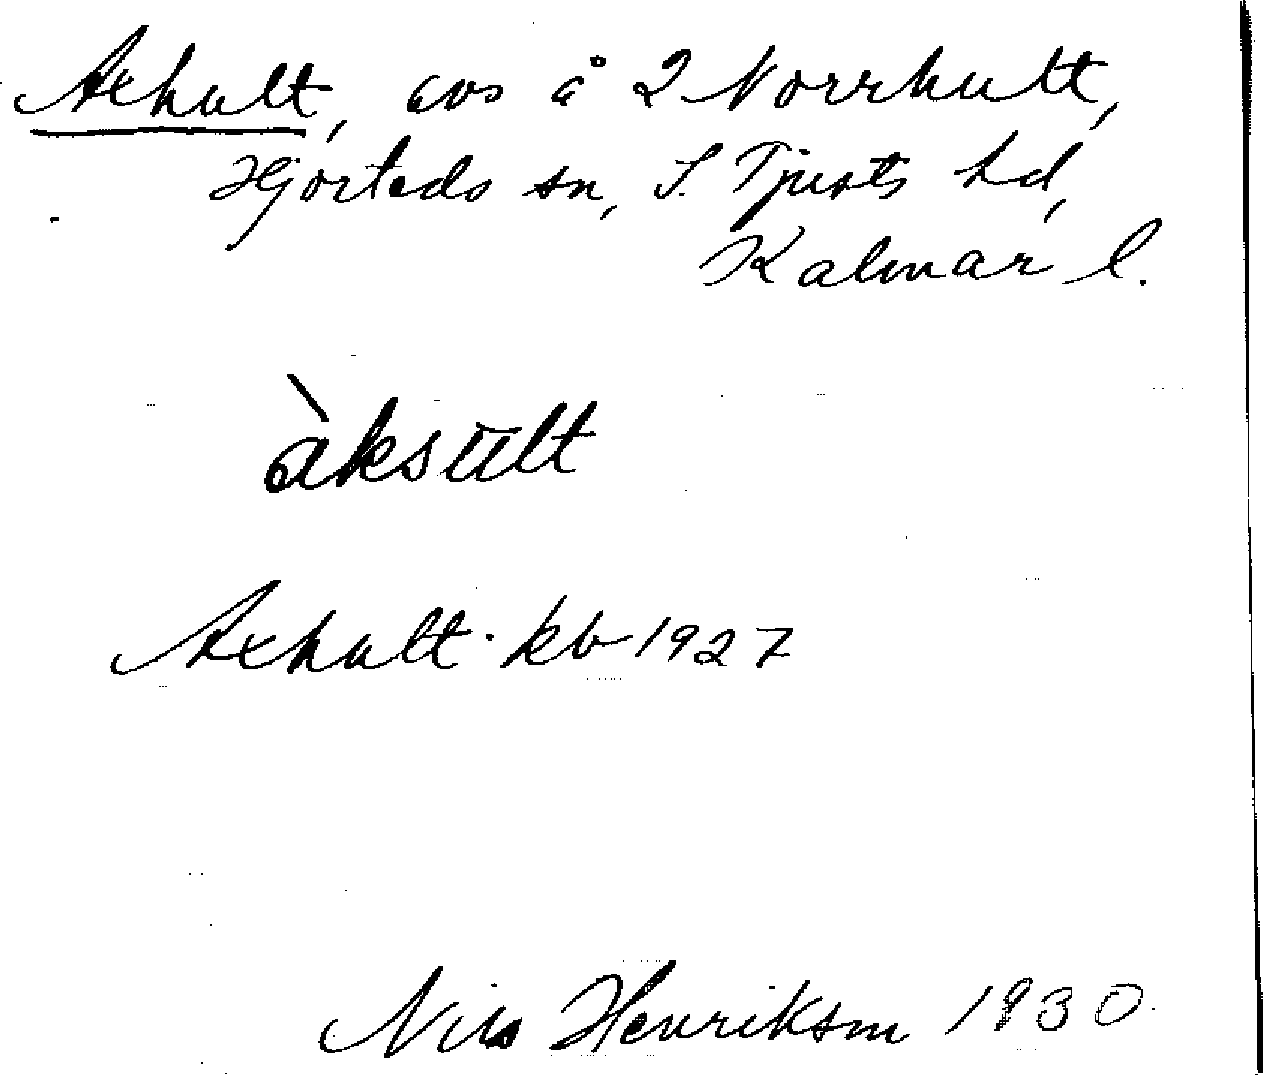 Axhult, avs å 2 Norrhult,
Hjorteds sn, S. Tjusts hd,
Kalmar l.
àksūlt
Axhult · kb 1927
Nils Henriksm 1930.